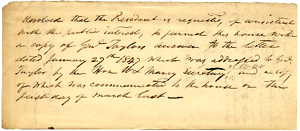 Resolved that the President is requested, if consistent
with the public interest, to furnish the house with
a copy of Genl Taylors answer to the letter
dated January 27th 1847 which was addressed to Genl
Taylor by the Hon W L Marcy Secretary of War a copy
of which was communicated to the house on the
first day of March last